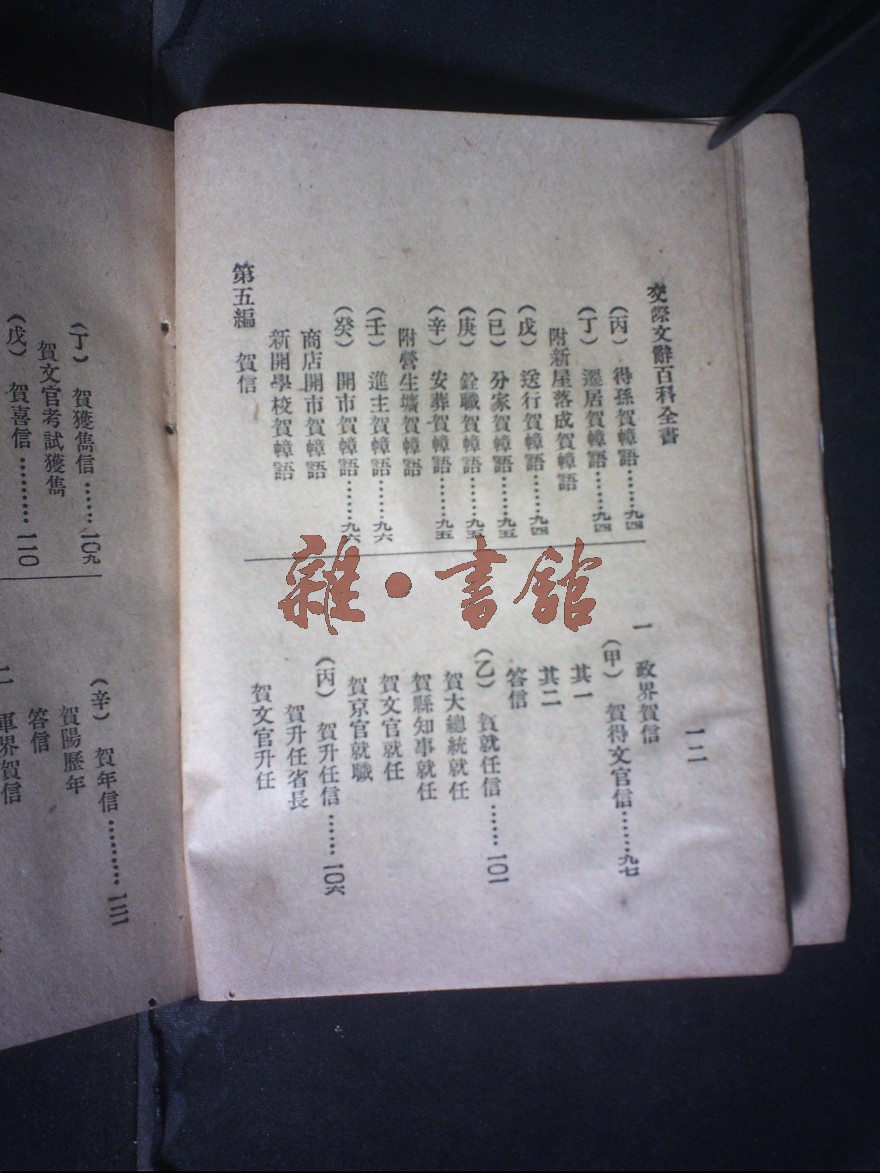 交際文辭百科全書
一二
(丙) 得孫賀幛語……九四
(丁) 遷居賀幛語……九四
附新屋落成賀幛語
(戊) 送行賀幛語……九四
(已) 分家賀幛語……九五
(庚) 銓職賀幛語……九五
(辛) 安葬賀幛語……九五
附營生壙賀幛語
(壬) 進主賀幛語……九六
(癸) 開市賀幛語……九六
商店開市賀幛語
新開學校賀幛語
第五編 賀信
一 政界賀信
(甲) 賀得文官信……九七
其一
其二
答信
(乙) 賀就任信……一〇一
賀大總統就任
賀縣知事就任
賀文官就任
賀京官就職
(丙) 賀升任信……一〇六
賀升任省長
賀文官升任
(丁) 賀獲雋信……一〇九
賀文官考試獲雋
(戊) 賀喜信……一一〇
(辛) 賀年信……一二一
賀陽歷年
答信
二 軍界賀信
雜·書館